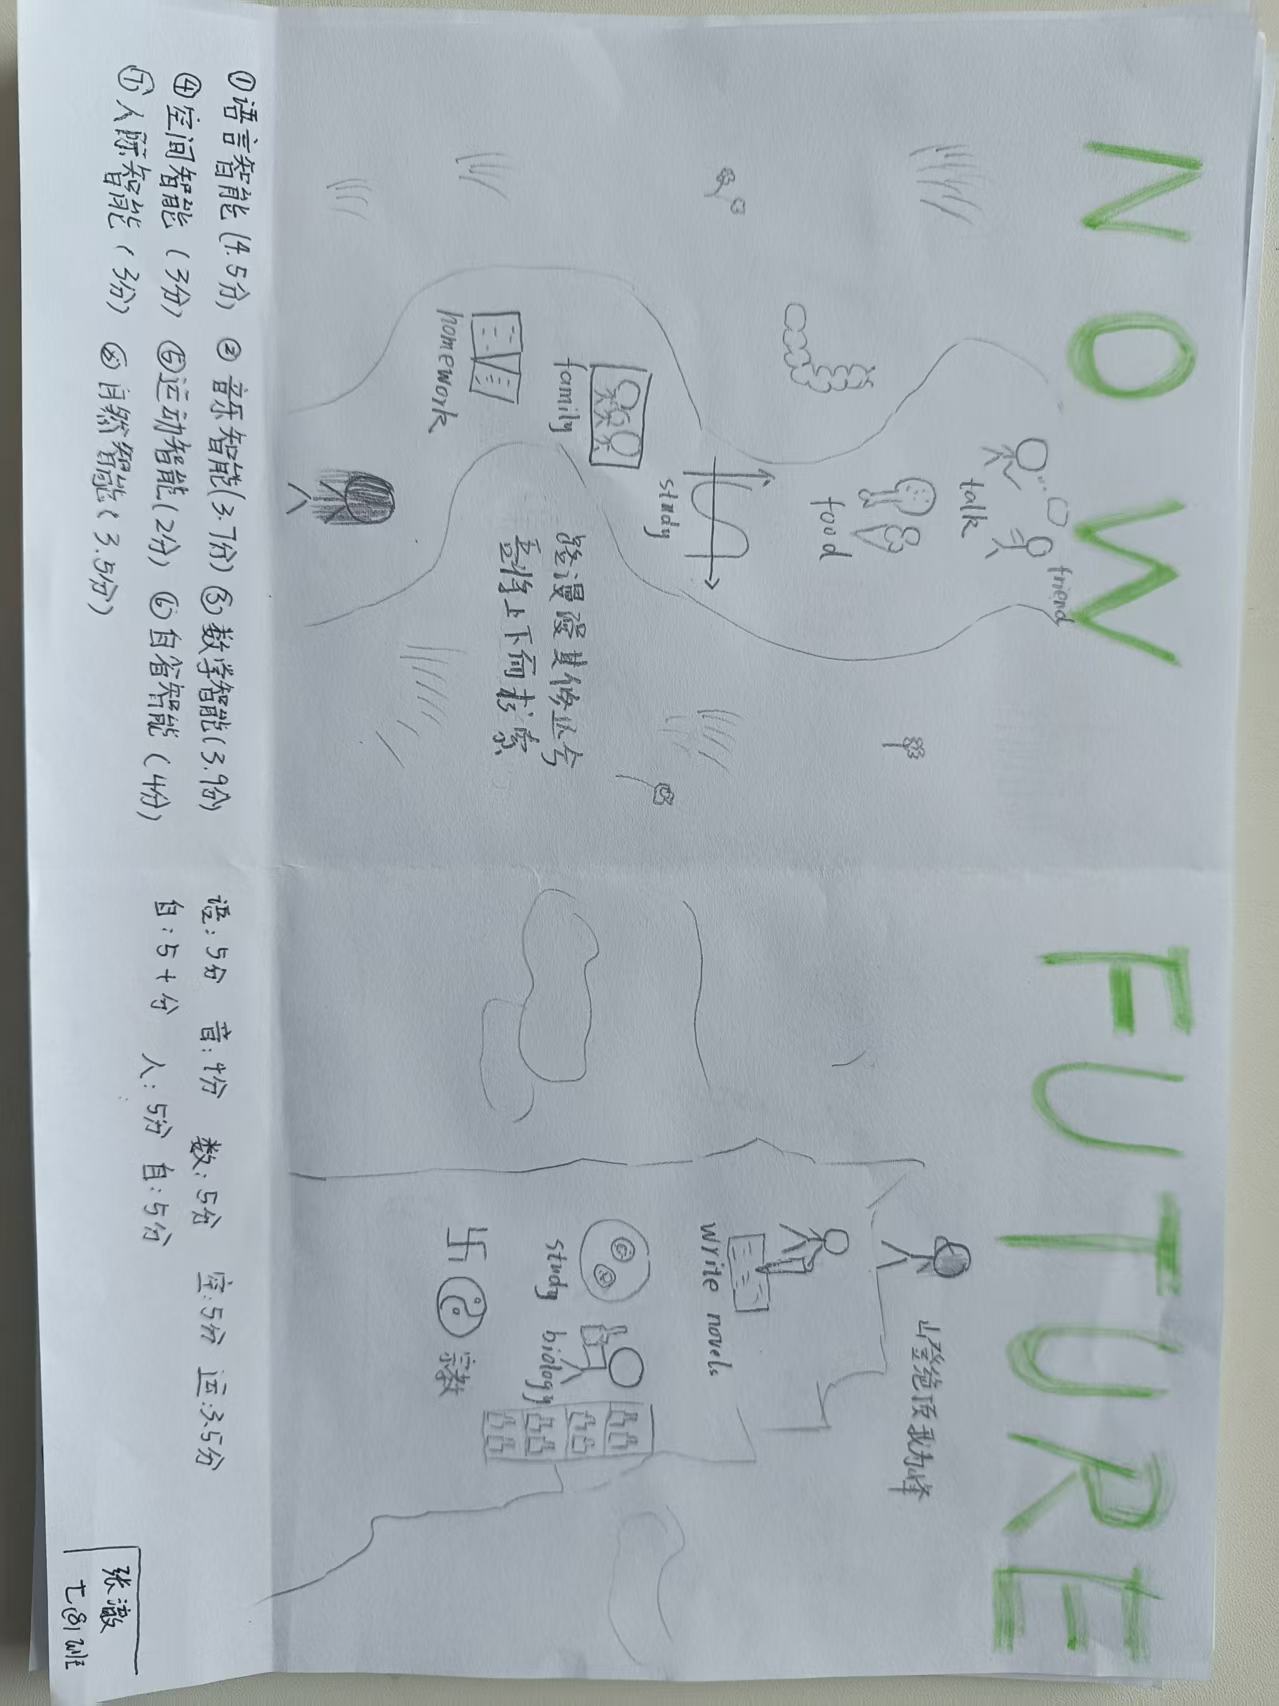 NOW
friend
talk
food
study
family
homework
路漫漫其修远兮
吾将上下而求索
FUTURE
山登绝顶我为峰
write novels
study biology
卐
宗教
①语言智能(4.5分) ②音乐智能(3.7分) ③数学智能(3.9分)
④空间智能(3分) ⑤运动智能(2分) ⑥自省智能(4分)
⑦人际智能(3分) ⑧自然智能(3.5分)
语:5分 音:4分 数:5分 空:5分 运:3.5分
自:5+分 人:5分 自:5分
张澈
七(8)班